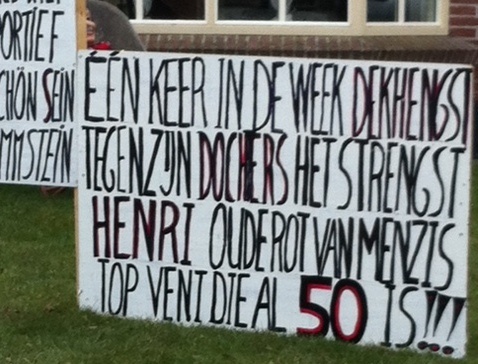 PORTIEF
CHÖN SEIN
MMSTEIN
ÉÉN KEER IN DE WEEK DEKHENGST
TEGEN ZIJN DOCHERS HET STRENGST
HENRI OUDE ROT VAN MENZIS
TOP VENT DIE AL 50 IS!!!